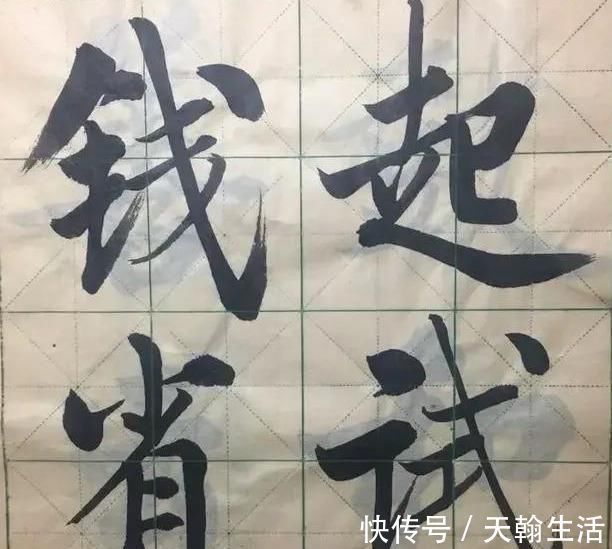 钱起
省试
快传号 / 天翰生活